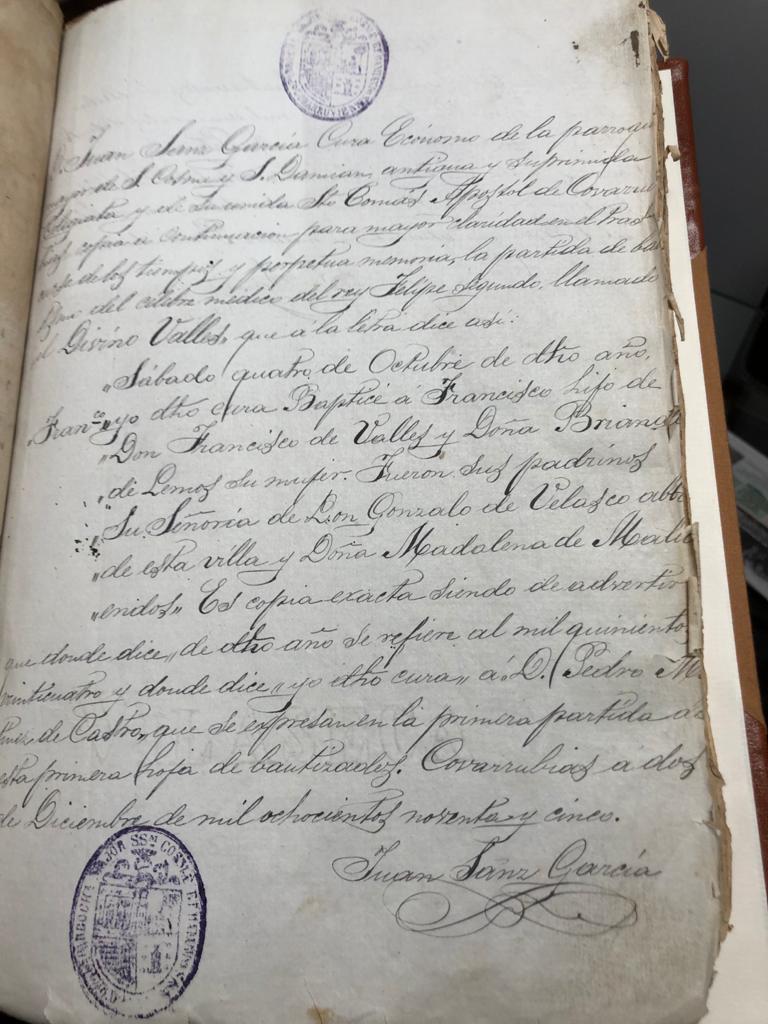 D. Juan Sanz García Cura Ecónomo de la parroqui
mayor de S. Cosme y S. Damian, antigua y suprimida
Colegiata y de su unida Sto Tomás Apostol de Covarru
bias, copia a continuacion para mayor claridad en el tras
curso de los tiempos y perpetua memoria, la partida de bau
tismo del célebre médico del rey Felipe segundo, llamado
el Divino Valles, que a la letra dice así:
„Sábado quatro de Octubre de dho año,
„Fran.co „yo dho cura Bapticé á Francisco hijo de
„Don Francisco de Valles y Doña Brianda
„de Lemos su mujer. Fueron sus padrinos
„Su Señoría de Don Gonzalo de Velasco abbe
„de esta villa y Doña Madalena de Malu
„endos„ Es copia exacta siendo de advertir
que donde dice„ de dho año se refiere al mil quinientos
veinticuatro y donde dice„ yo dho cura„ á D. Pedro M.
tinez de Castro, que se expresan en la primera partida de
esta primera hoja de bautizados. Covarrubias á dos
de Diciembre de mil ochocientos noventa y cinco.
Juan Sanz García